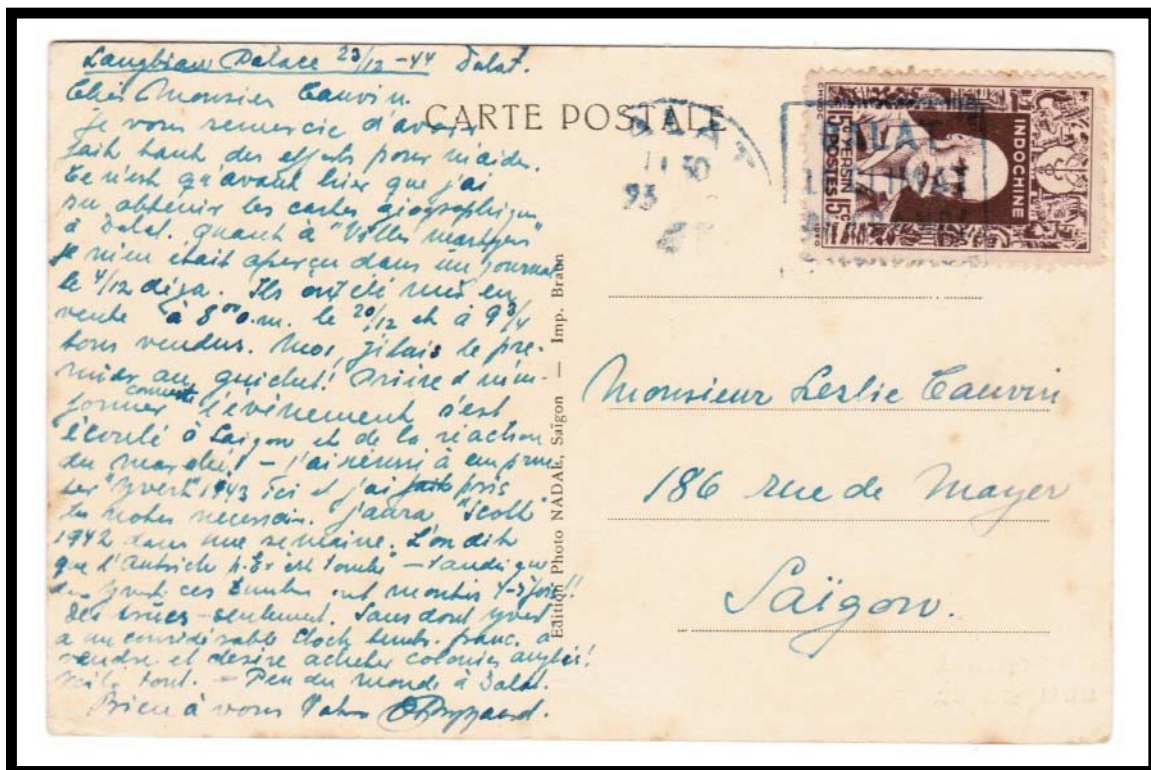 Langbian Palace 23/12-44 Dalat.
Cher Monsieur Cauvin.
Je vous remercie d'avoir
fait tant des efforts pour m'aider.
Ce n'est qu'avant hier que j'ai
pu obtenir les cartes géographiques
à Dalat. Quant à "Villes martyrs"
je m'en était aperçu dans un journal
le 4/12 déja. Ils ont été mis en
vente à 8°° a.m. le 20/12 et à 9 3/4
tous vendus. Moi, j'étais le pre-
mier au guichet! Prière d'm'in-
former comment l'évènement s'est
écoulé à Saigon et de la réaction
du marché! - J'ai réussi à emprun-
ter "Yvert" 1943 ici et j'ai pris
les notes necessair. J'aura "Scott"
1942 dans une semaine. L'on dit
que l'Autrich est tombé - tandis que
ces timbres ont montés 4-5 fois!!
Des trucs - seulement. Sans dout Yvert
a un considérable stock timb. franc. à
vendre et desire acheter colonies anglais!
tout. - Peu du monde à Dalat.
Bien à vous
CARTE POSTALE
Edition Photo NADAL, Saïgon — Imp. Braun
DALAT
11 50
23
DALAT
INDOCHINE
15c YERSIN 15c
POSTES
Monsieur Leslie Cauvin
186 rue de Mayer
Saïgon.